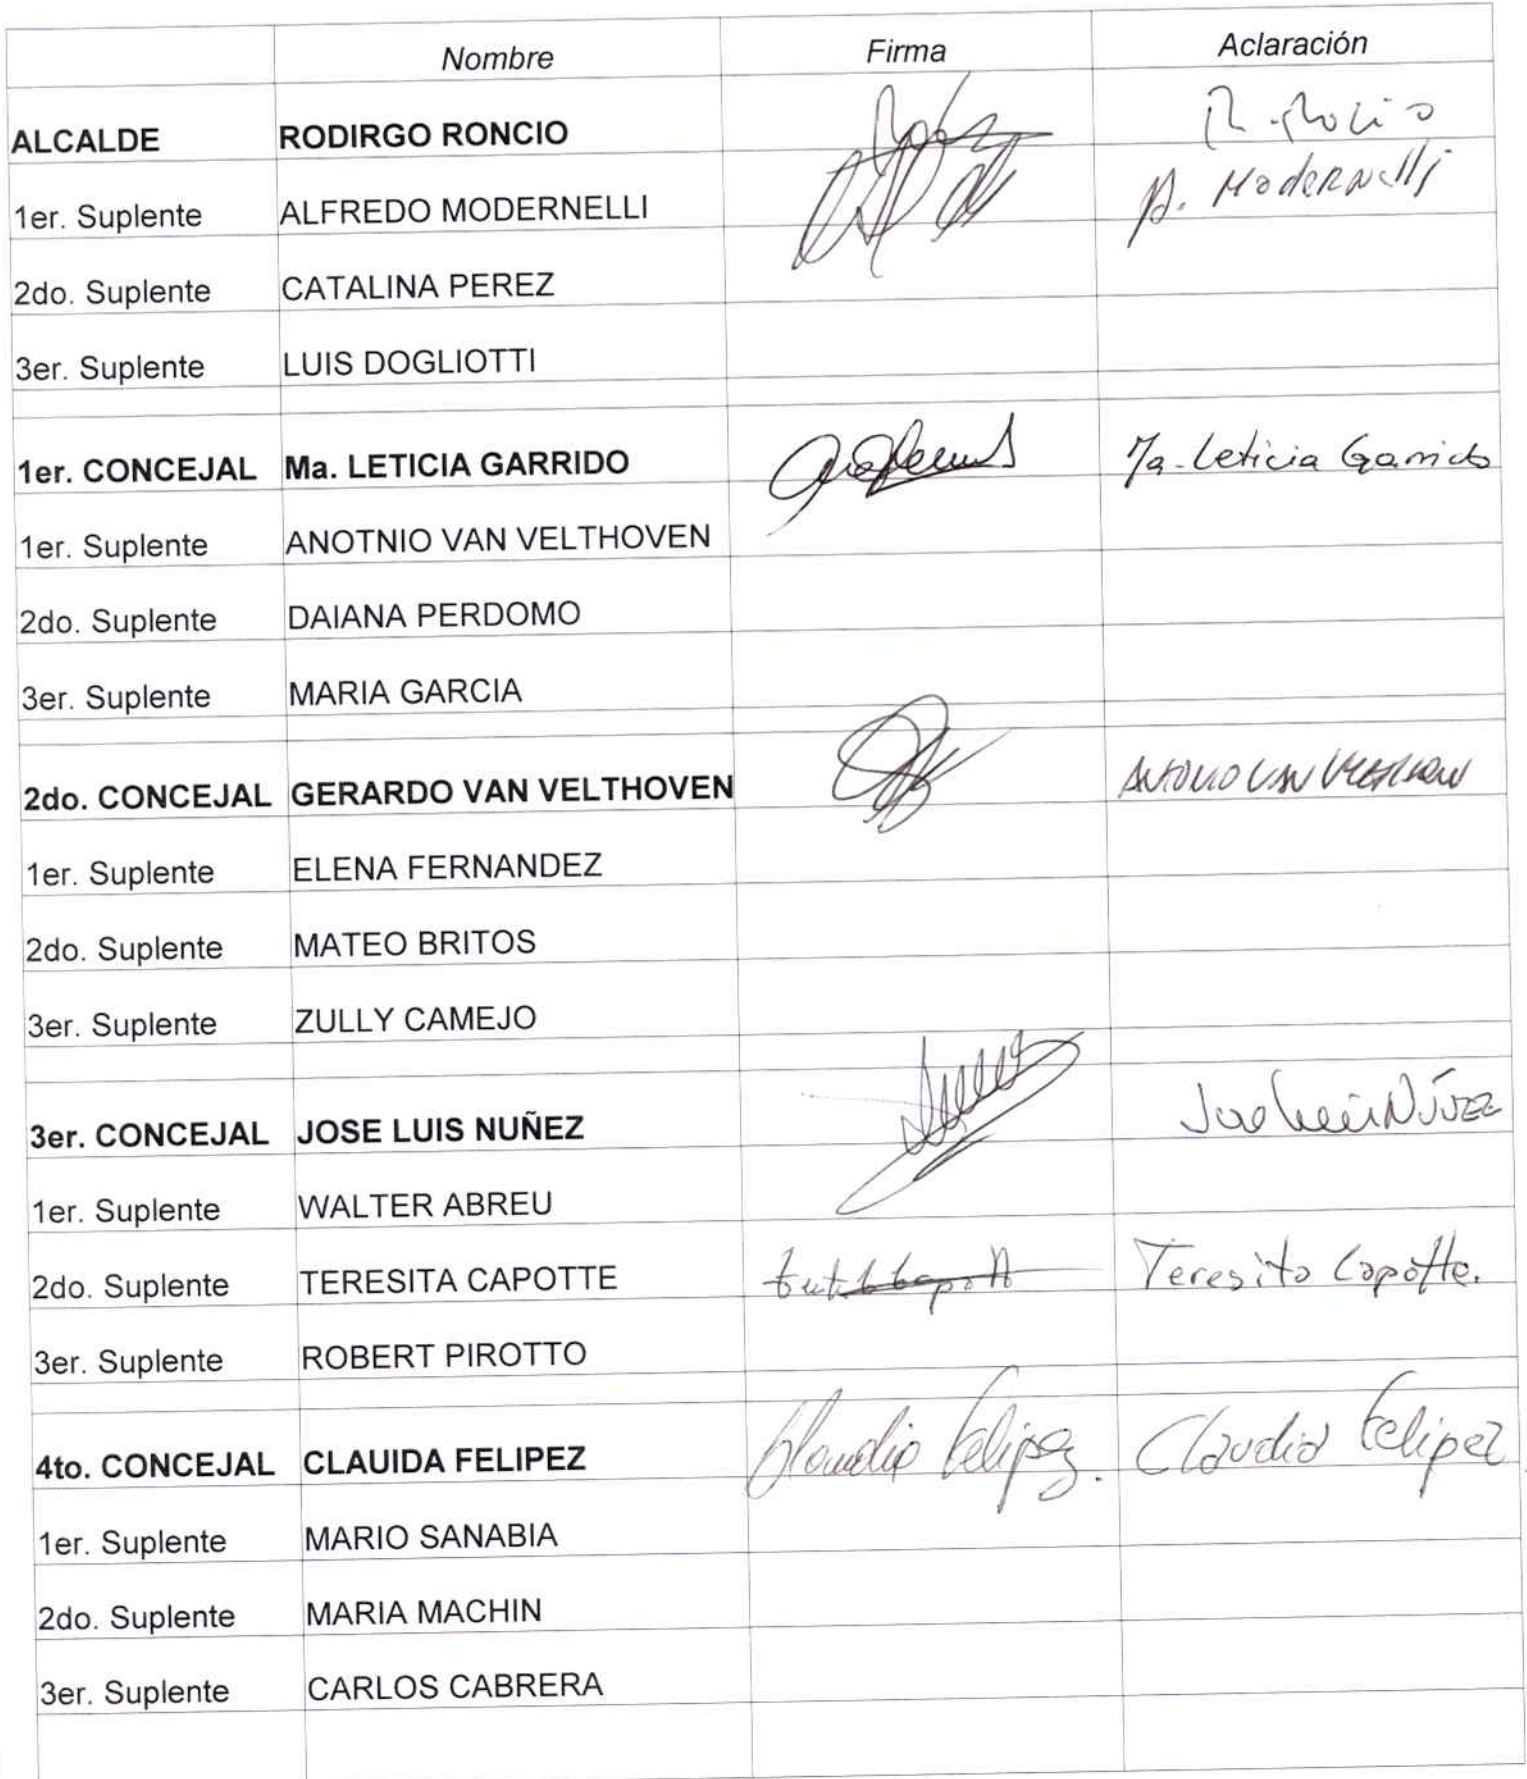 Nombre Firma Aclaración
ALCALDE RODIRGO RONCIO
1er. Suplente ALFREDO MODERNELLI A. Modernelli
2do. Suplente CATALINA PEREZ
3er. Suplente LUIS DOGLIOTTI
1er. CONCEJAL Ma. LETICIA GARRIDO Ma. Leticia Garrido
1er. Suplente ANOTNIO VAN VELTHOVEN
2do. Suplente DAIANA PERDOMO
3er. Suplente MARIA GARCIA
2do. CONCEJAL GERARDO VAN VELTHOVEN ANTONIO VAN VELTHOVEN
1er. Suplente ELENA FERNANDEZ
2do. Suplente MATEO BRITOS
3er. Suplente ZULLY CAMEJO
3er. CONCEJAL JOSE LUIS NUÑEZ Jose Luis Núñez
1er. Suplente WALTER ABREU
2do. Suplente TERESITA CAPOTTE Teresita Capotte.
3er. Suplente ROBERT PIROTTO
4to. CONCEJAL CLAUIDA FELIPEZ Claudia Felipez. Claudia Felipez
1er. Suplente MARIO SANABIA
2do. Suplente MARIA MACHIN
3er. Suplente CARLOS CABRERA